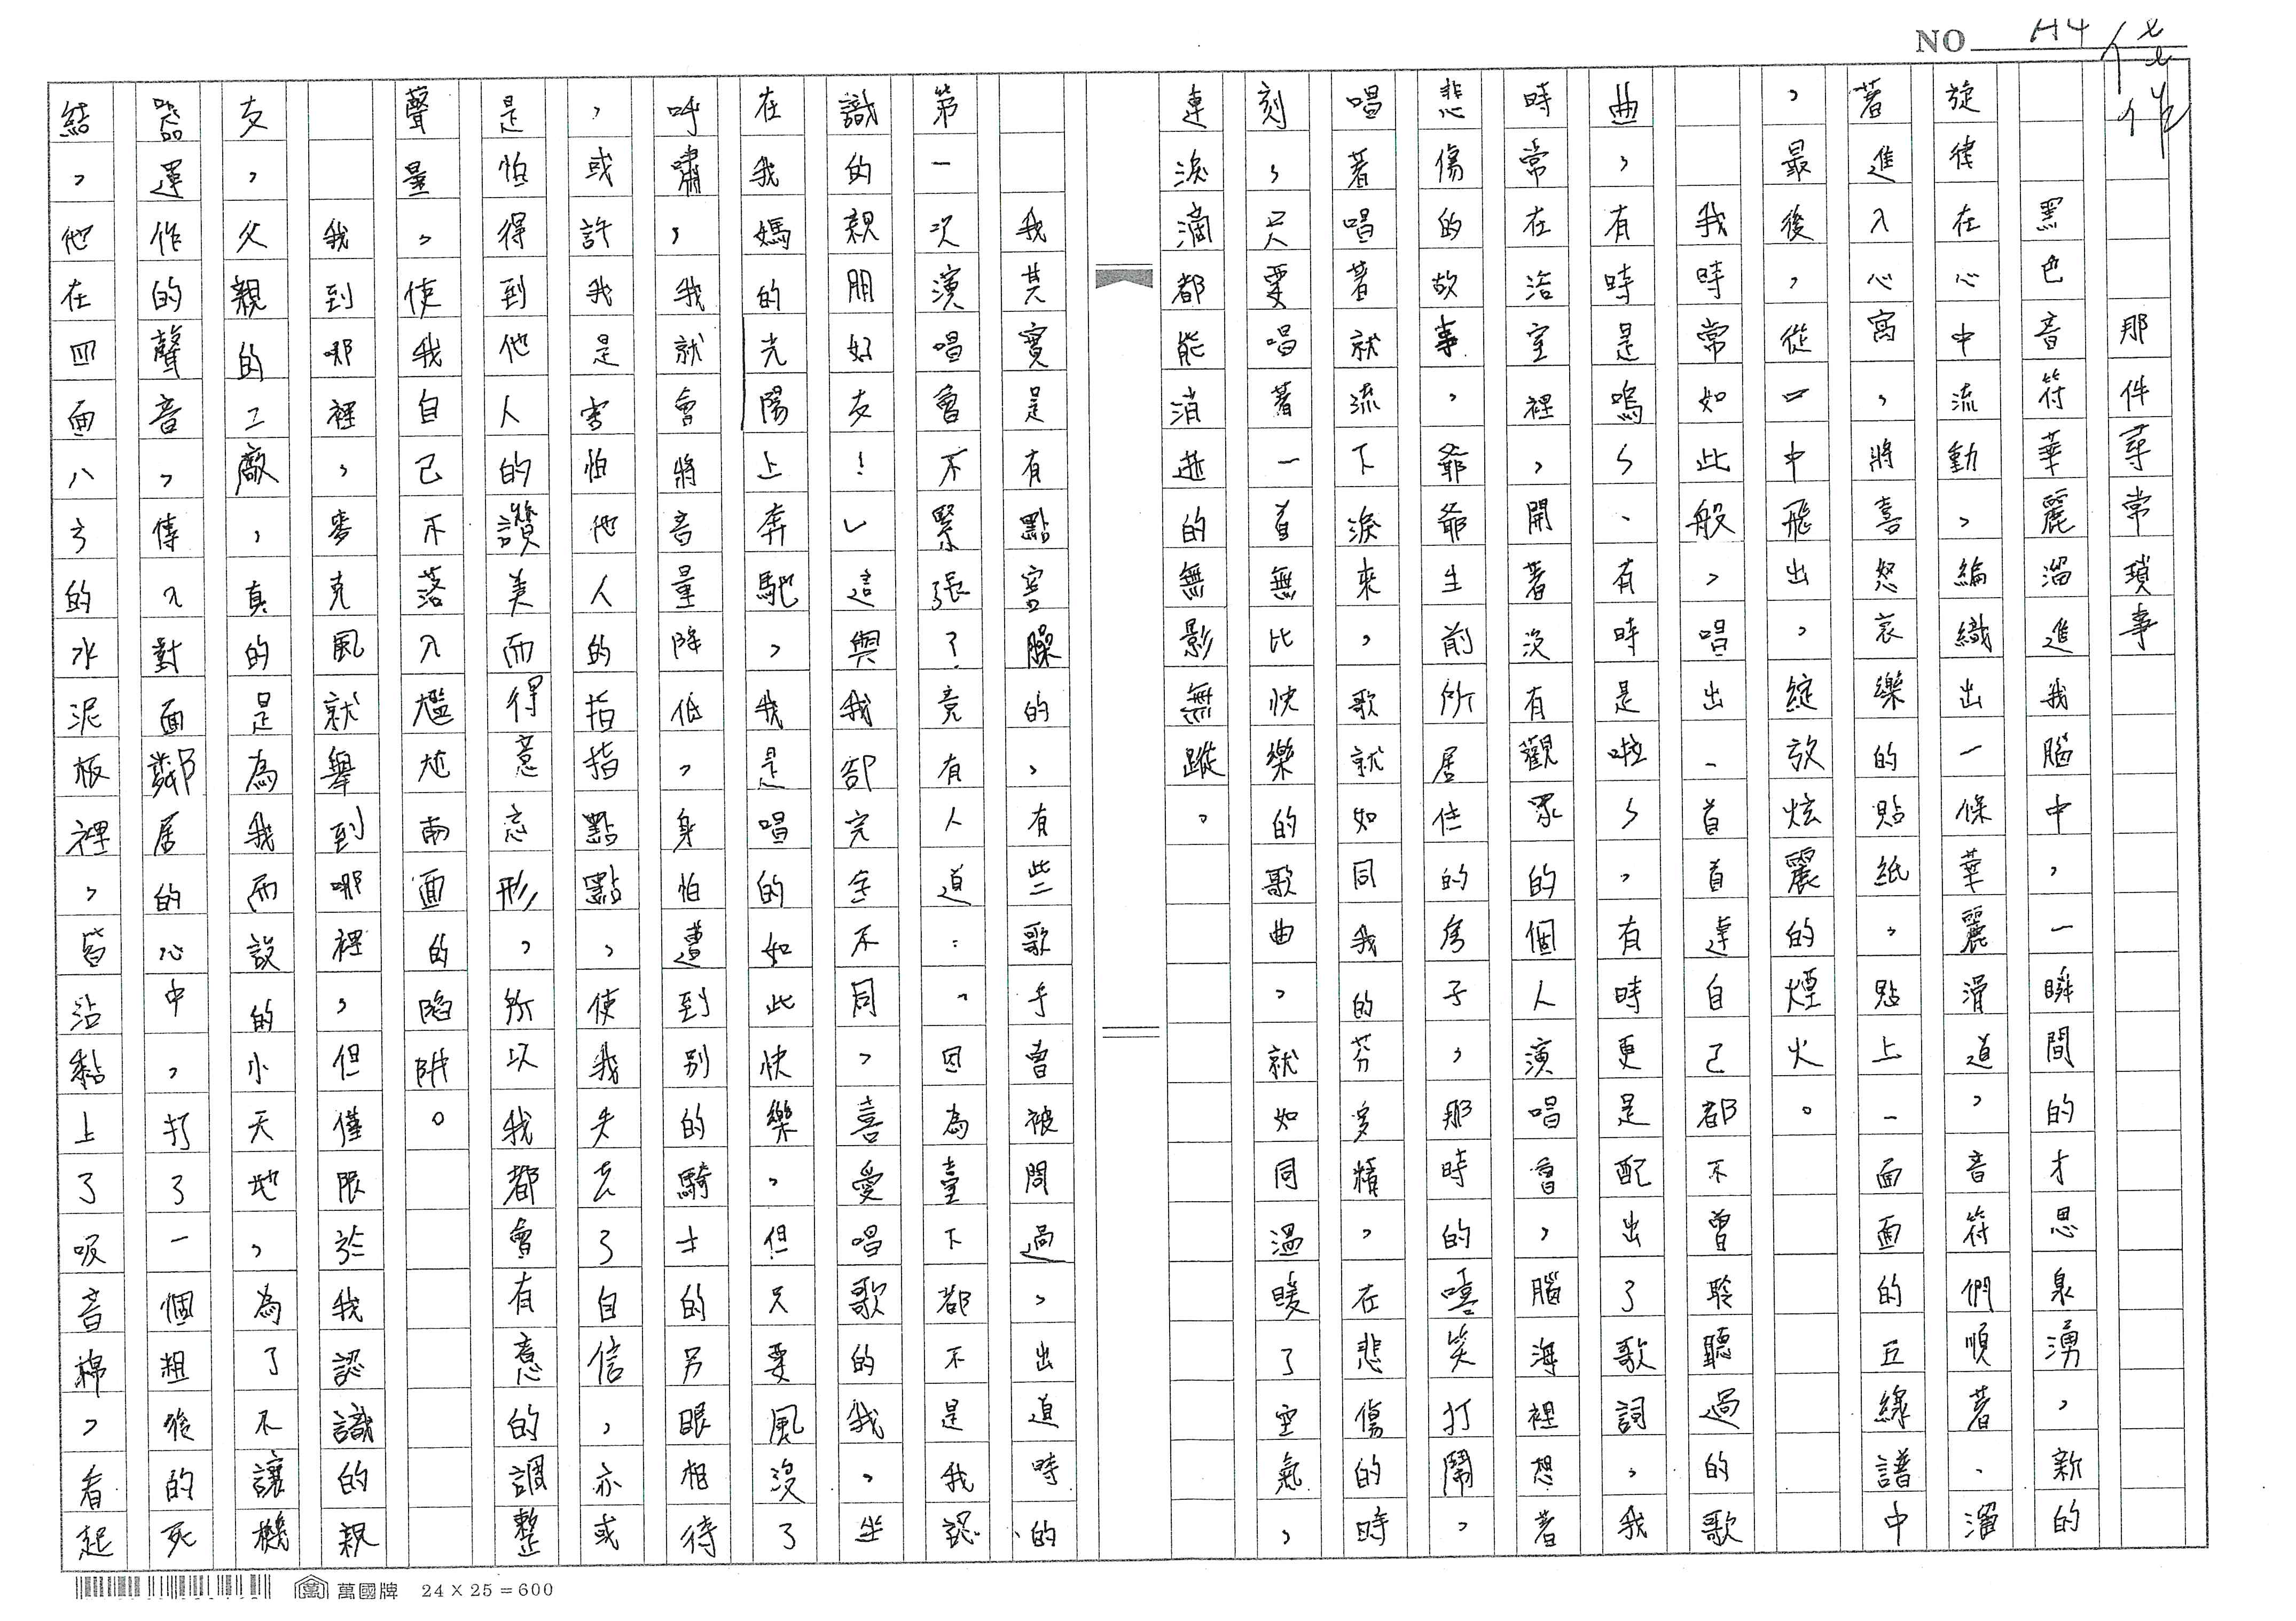 NO H4
那件尋常瑣事
黑色音符華麗溜進我腦中，一瞬間的才思泉湧，新的
旋律在心中流動，編織出一條華麗滑道，音符們順著、溜
著進入心窩，將喜怒哀樂的貼紙，貼上一面面的五線譜中
，最後，從口中飛出，綻放炫麗的煙火。
我時常如此般，唱出一首首連自己都不曾聆聽過的歌
曲，有時是嗚ㄣ、有時是啦ㄣ，有時更是配出了歌詞，我
時常在浴室裡，開著沒有觀眾的個人演唱會，腦海裡想著
悲傷的故事，爺爺生前所居住的房子，那時的嘻笑打鬧，
唱著唱著就流下淚來，歌就如同我的芬多精，在悲傷的時
刻，只要唱著一首無比快樂的歌曲，就如同溫暖了空氣，
連淚滴都能消逝的無影無蹤。
我其實是有點害臊的，有些歌手曾被問過，出道時的
第一次演唱會不緊張了，竟有人道：「因為臺下都不是我認
識的親朋好友！」這與我卻完全不同，喜愛唱歌的我，坐
在我媽的光陽上奔馳，我是唱的如此快樂，但只要風沒了
呼嘯，我就會將音量降低，身怕遭到別的騎士的另眼相待
，或許我是害怕他人的指指點點，使我失去了自信，亦或
是怕得到他人的讚美而得意忘形，所以我都會有意的調整
聲量，使我自己不落入尷尬兩面的陷阱。
我到哪裡，麥克風就舉到哪裡，但僅限於我認識的親
友，父親的工廠，真的是為我而設的小天地，為了不讓機
器運作的聲音，傳入對面鄰居的心中，打了一個粗後的死
結，他在四面八方的水泥板裡，皆沾黏上了吸音綿，看起
萬國牌 24×25=600